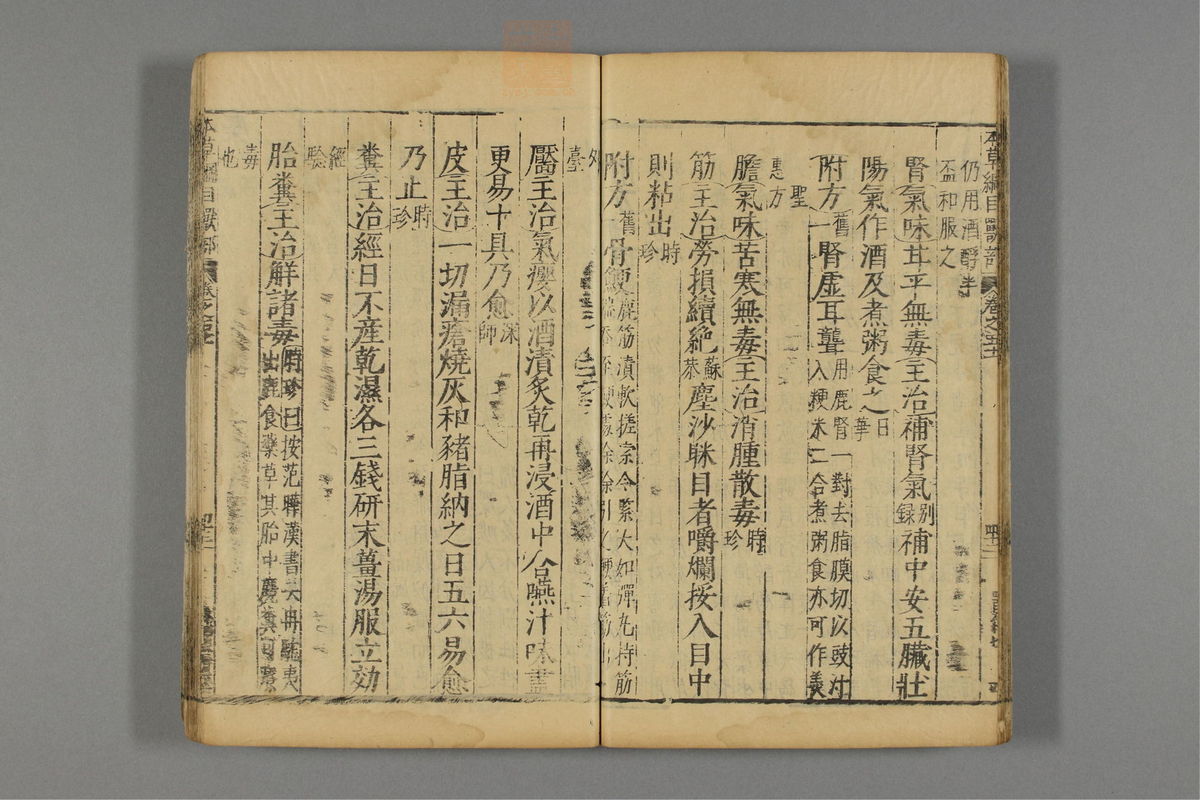 本草綱目獸部 卷之五十
仍用酒醇半
盃和服之
腎氣味甘平無毒主治補腎氣別錄補中安五臟壯
陽氣作酒及煮粥食之日華
附方舊一腎虛耳聾用鹿腎一對去脂膜切以豉汁
入粳米二合煮粥食亦可作羹
聖
惠方
膽氣味苦寒無毒主治消腫散毒時珍
筋主治勞損續絶蘇恭塵沙眯目者嚼爛挼入目中
則粘出時珍
附方舊一骨鯁鹿筋漬軟搓索令緊大如彈丸持筋
端吞至鯁處徐徐引之鯁着筋出
外
臺
靨主治氣癭以酒漬炙乾再浸酒中含嚥汁味盡
更易十具乃愈深師
皮主治一切漏瘡燒灰和豬脂納之日五六易愈
乃止時珍
糞主治經日不産乾濕各三錢研末薑湯服立効
經
驗
胎糞主治解諸毒時珍曰按范曄漢書云冉駹夷
出鹿食藥草其胎中麑糞可療
毒
也
本草綱目獸部